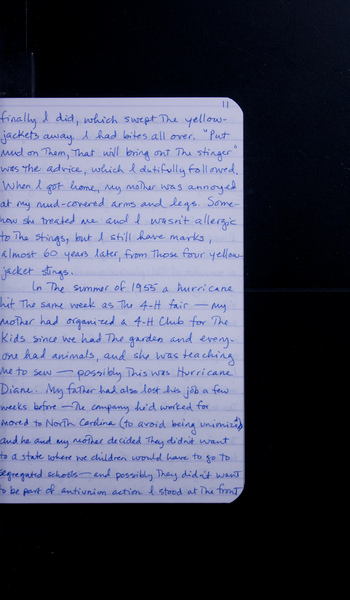 11
finally I did, which swept the yellow-
jackets away. I had bites all over. "Put
mud on them, that will bring out the stinger"
was the advice, which I dutifully followed.
When I got home, my mother was annoyed
at my mud-covered arms and legs. Some-
how she treated me and I wasn't allergic
to the stings, but I still have marks,
almost 60 years later, from those four yellow-
jacket stings.
In the summer of 1955 a hurricane
hit the same week as the 4-H fair — my
mother had organized a 4-H Club for the
kids since we had the garden and every-
one had animals, and she was teaching
me to sew — possibly this was Hurricane
Diane. My father had also lost his job a few
weeks before — the company he'd worked for
moved to North Carolina (to avoid being unionized)
and he and my mother decided they didn't want
to a state where we children would have to go to
segregated schools — and possibly they didn't want
to be part of antiunion action. I stood at the front